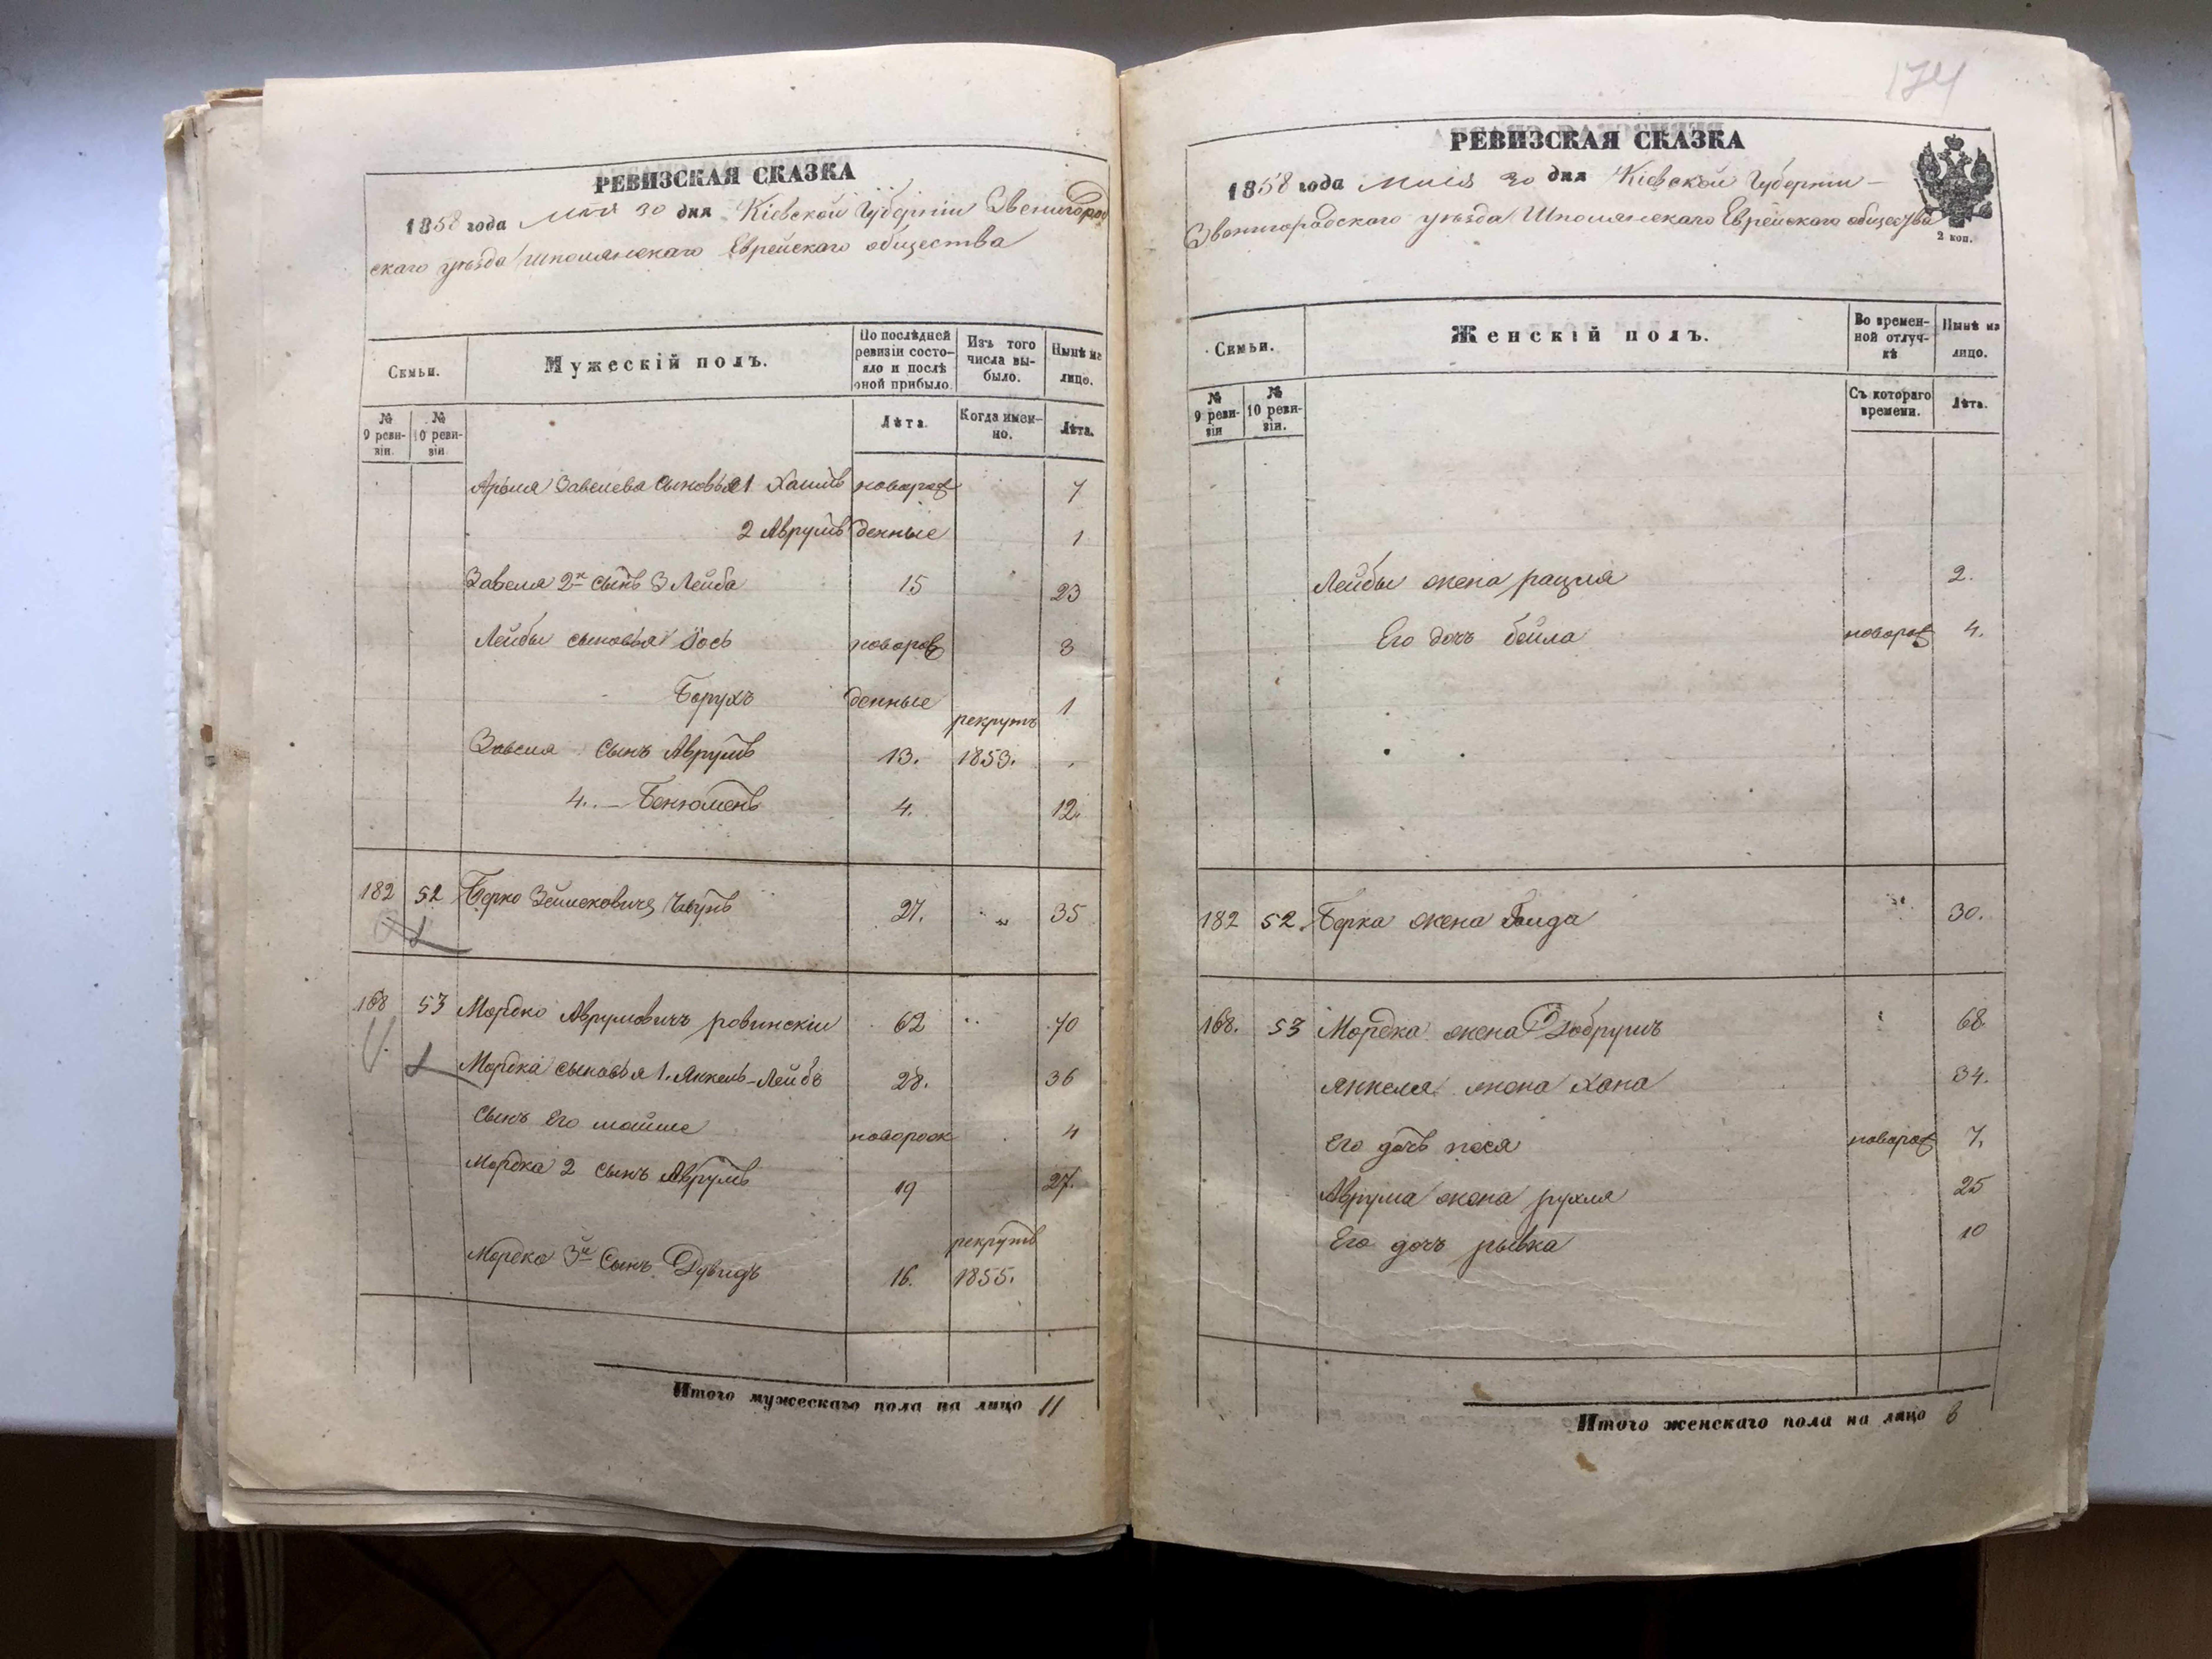 РЕВИЗСКАЯ СКАЗКА
1858 года мая 30 дня Кіевской Губерніи Звенигород
скаго уѣзда Шполянскаго Еврейскаго общества
Семьи.
Мужескій полъ.
По послѣдней ревизіи состояло и послѣ оной прибыло.
Изъ того числа выбыло.
Нынѣ на лицо.
№ 9 ревизіи.
№ 10 ревизіи.
Лѣта.
Когда именно.
Лѣта.
Завелева сыновья 1 Хаимъ новорож 7
2 Аврумъ денные 1
Завеля 2й сынъ 3 Лейба 15 23
Лейбы сыновья Іось новорож 3
Борухъ денные 1
рекрутъ
Завеля сынъ Аврумъ 13. 1853.
4. Бенюменъ 4. 12.
182 52 Берко 27. 35
168 53 Мордко Аврумовичъ ровинскіи 62 70
Мордка сыновья 1. Янкель-Лейбъ 28. 36
сынъ его мошше новорож 4
Мордка 2 сынъ Аврумъ 19 27.
рекрутъ
Мордка 3й сынъ Дувидъ 16. 1855.
Итого мужескаго пола на лицо 11
174
РЕВИЗСКАЯ СКАЗКА
1858 года мая 30 дня Кіевской Губерніи
Звенигородскаго уѣзда Шполянскаго Еврейскаго общества
2 коп.
Семьи.
Женскій полъ.
Во временной отлучкѣ
Нынѣ на лицо.
№ 9 ревизіи
№ 10 ревизіи.
Съ котораго времени.
Лѣта.
Лейбы жена рацля 2.
Его дочь бейла новорож 4.
182 52. Берка жена 30.
168. 53 Мордка жена Добрушъ 68
Янкеля жена Хана 34.
Его дочь песя новорож 7.
Аврума жена рухля 25
Его дочь рывка 10
Итого женскаго пола на лицо 8